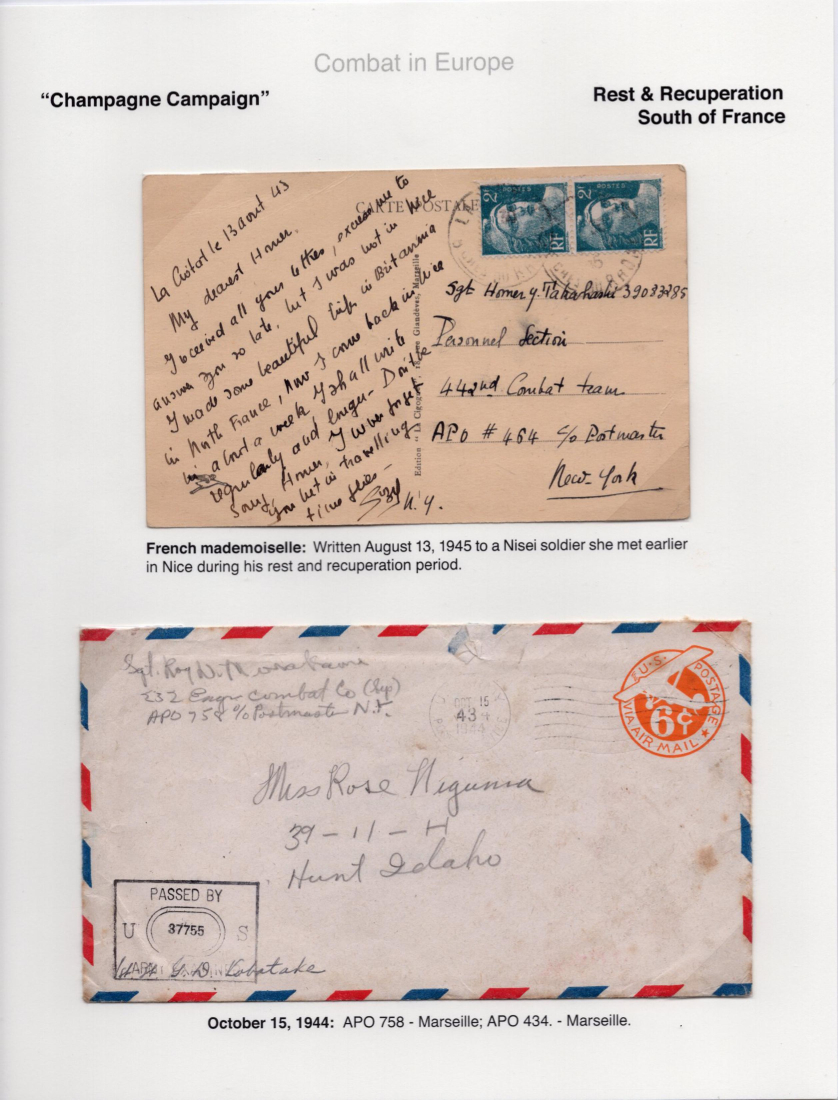 Combat in Europe
“Champagne Campaign”
Rest & Recuperation
South of France
CARTE POSTALE
La Ciotat le 13 aout 45
My dearest Homer.
I received all your letters, excuse me to
answer you so late, but I was not in Nice
I made some beautiful trip in Britannia
in North France, Now I come back in Nice
in about a week I shall write
regularly and longer - Don't be
sorry Homer, I never forget
you but in travelling
time flies -
N.Y.
Edition "La Cigogne", Marseille
POSTES
2F
RF
POSTES
2F
RF
Sgt Homer Y. Takahashi 39083285
Personnel Section
442nd Combat team
APO # 464 c/o Postmaster
New-York
French mademoiselle: Written August 13, 1945 to a Nisei soldier she met earlier
in Nice during his rest and recuperation period.
Sgt. Roy W.
232 Engr Combat Co (Sep)
APO 758 c/o Postmaster N.Y.
OCT 15
43
1944
U.S. POSTAGE
6¢
VIA AIR MAIL
Miss Rose Niguma
39-11-H
Hunt Idaho
PASSED BY
U 37755 S
ARMY
Kobatake
October 15, 1944: APO 758 - Marseille; APO 434. - Marseille.